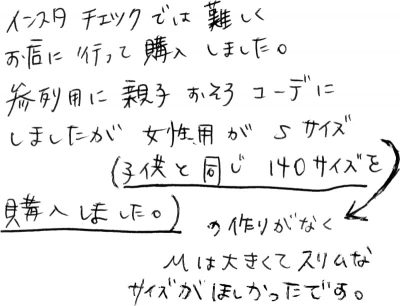 インスタ チェックでは 難しく
お店に 行って 購入 しました。
参列用に 親子 おそろ コーデに
しましたが 女性用が Sサイズ
(子供と同じ 140サイズを
購入しました。) の作りがなく
Mは大きくてスリムな
サイズがほしかったです。